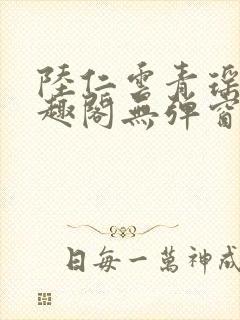 陸仁雲青瑶
趣閣無彈窗
日每一萬神成